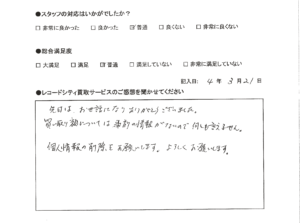 ●スタッフの対応はいかがでしたか？
□ 非常に良かった □ 良かった ☑ 普通 □ 良くない □ 非常に良くない
●総合満足度
□ 大満足 □ 満足 ☑ 普通 □ 満足していない □ 非常に満足していない
記入日: 4 年 3 月 21 日
●レコードシティ買取サービスのご感想を聞かせてください
先日は お世話になり ありがとうございました。
買い取り額については 事前の情報がないので 何とも言えません。
個人情報の削除を お願いします。よろしくお願いします。